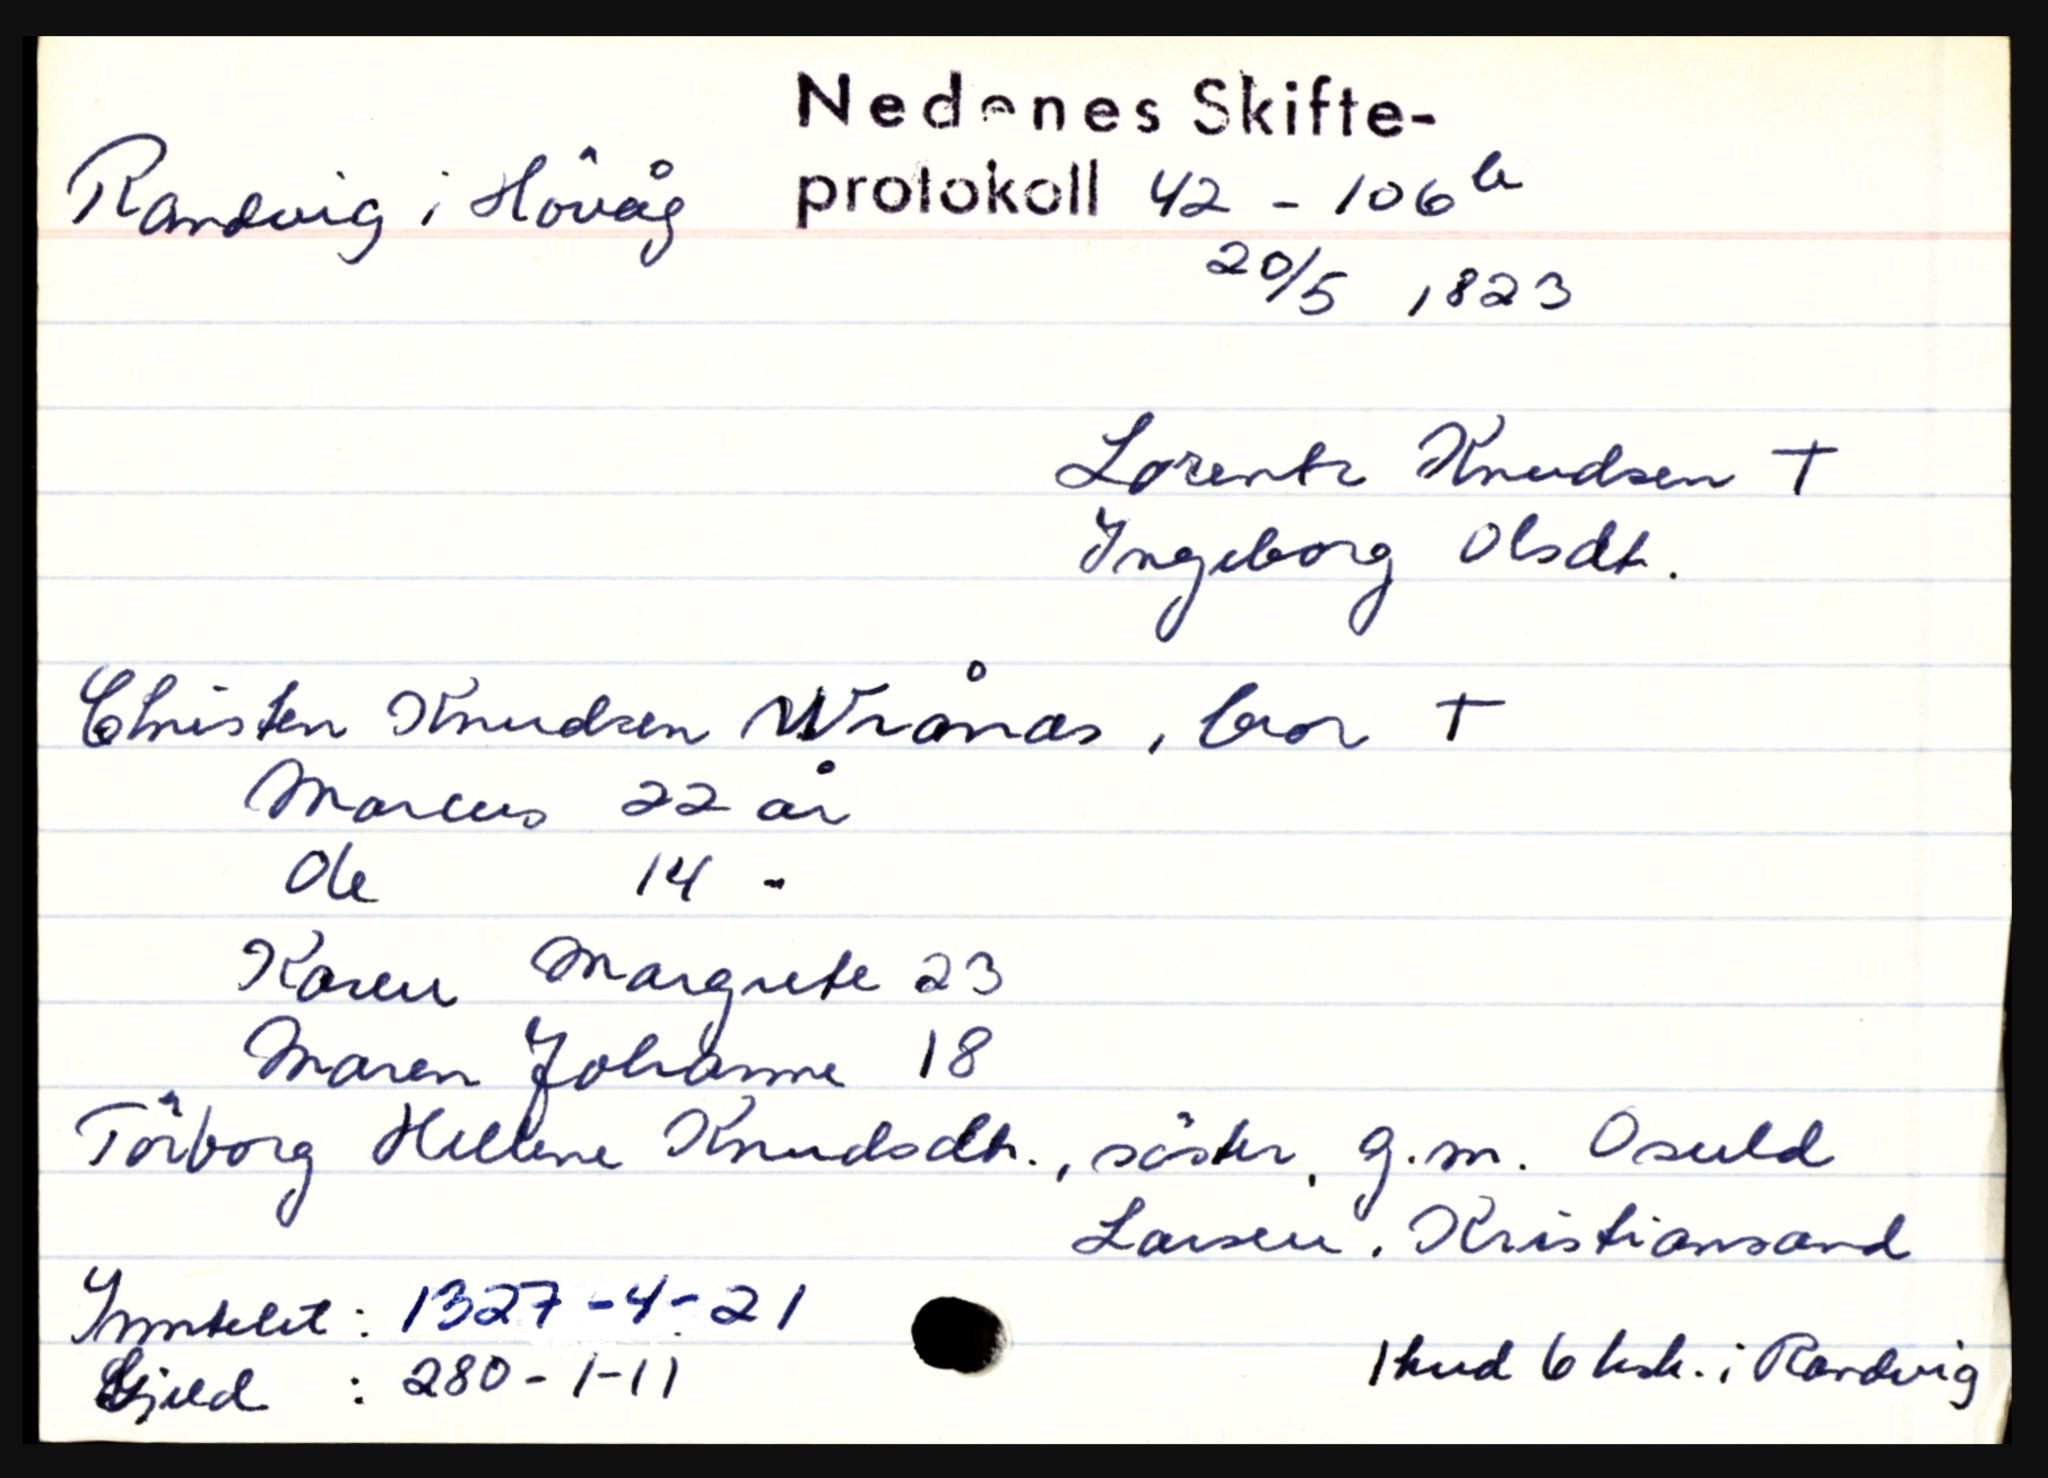 Nedenes Skifte-
Randvig i Hövåg protokoll 42 - 106 b
20/5 1823
Lorentz Knudsen †
Ingeborg Olsdt.
Christen Knudsen Wrånes, bror †
Marcus 22 år
Ole 14 "
Karen Margrete 23
Maren Johanne 18
Torborg Hellene Knudsdtr., söster, g.m. Osuld
Larsen, Kristiansand
Inntekt : 1327-4-21
Gjeld : 280-1-11
1 hud 6 ksk. i Randvig